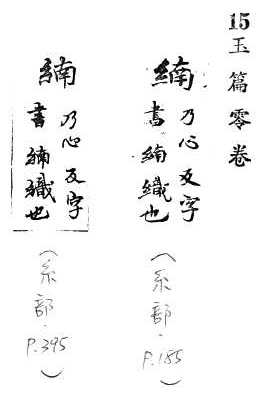 15玉篇零卷
䋻
乃心反字
書䋻織也
(系部·P.185)
䋻
乃心反字
書䋻織也
(系部·P.395)